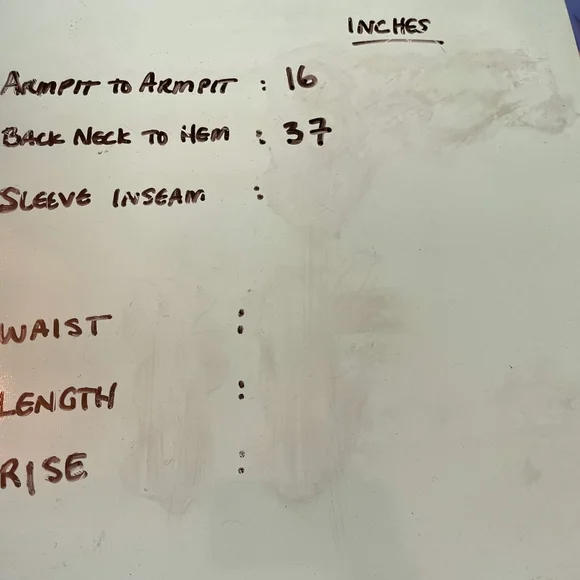 INCHES
ARMPIT TO ARMPIT : 16
BACK NECK TO HEM : 37
SLEEVE INSEAM :
WAIST :
LENGTH :
RISE :